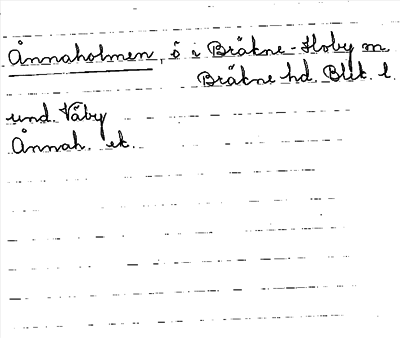 Ånnaholmen, ö i Bräkne-Hoby m
Bräkne hd. Blek. l.
und. Väby
Ånnah. ek.